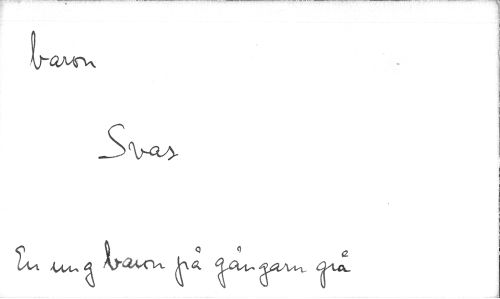 baron
Svas
En ung baron på gångarn grå